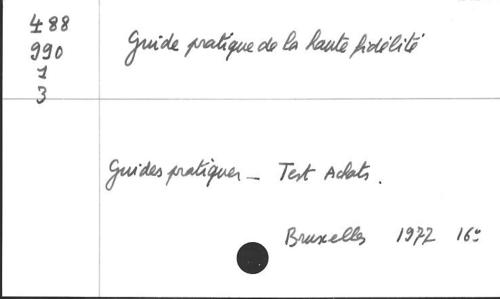 488
990
1
3
Guide pratique de la haute fidélité
Guides pratiques - Test Achats.
Bruxelles 1972 16º